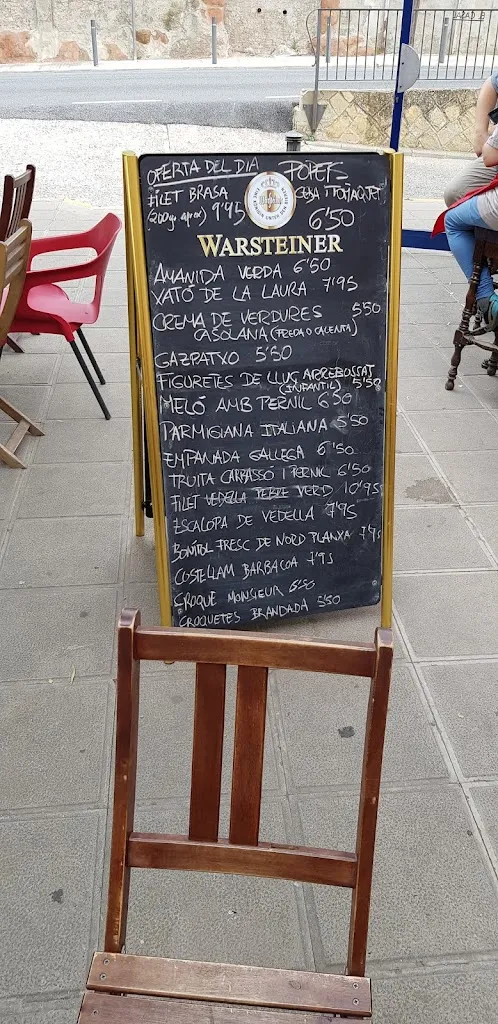 OFERTA DEL DIA
FILET BRASA
(200gr aprox) 9'95
POPETS
CEBA TOMAQUET
6'50
WARSTEINER
AMANIDA VERDA 6'50
XATÓ DE LA LAURA 7'95
CREMA DE VERDURES 5'50
CASOLANA (FREDA O CALENTA)
GAZPATXO 5'50
FIGURETES DE LLUÇ ARREBOSSAT
(INFANTIL) 5'50
MELÓ AMB PERNIL 6'50
PARMIGIANA ITALIANA 5'50
EMPANADA GALLEGA 6'50
TRUITA CARBASSÓ I PERNIL 6'50
FILET VEDELLA PEBRE VERD 10'95
ESCALOPA DE VEDELLA 7'95
BONITOL FRESC DE NORD PLANXA 7'95
COSTELLAM BARBACOA 7'95
CROQUE MONSIEUR 6'50
CROQUETES BRANDADA 5'50